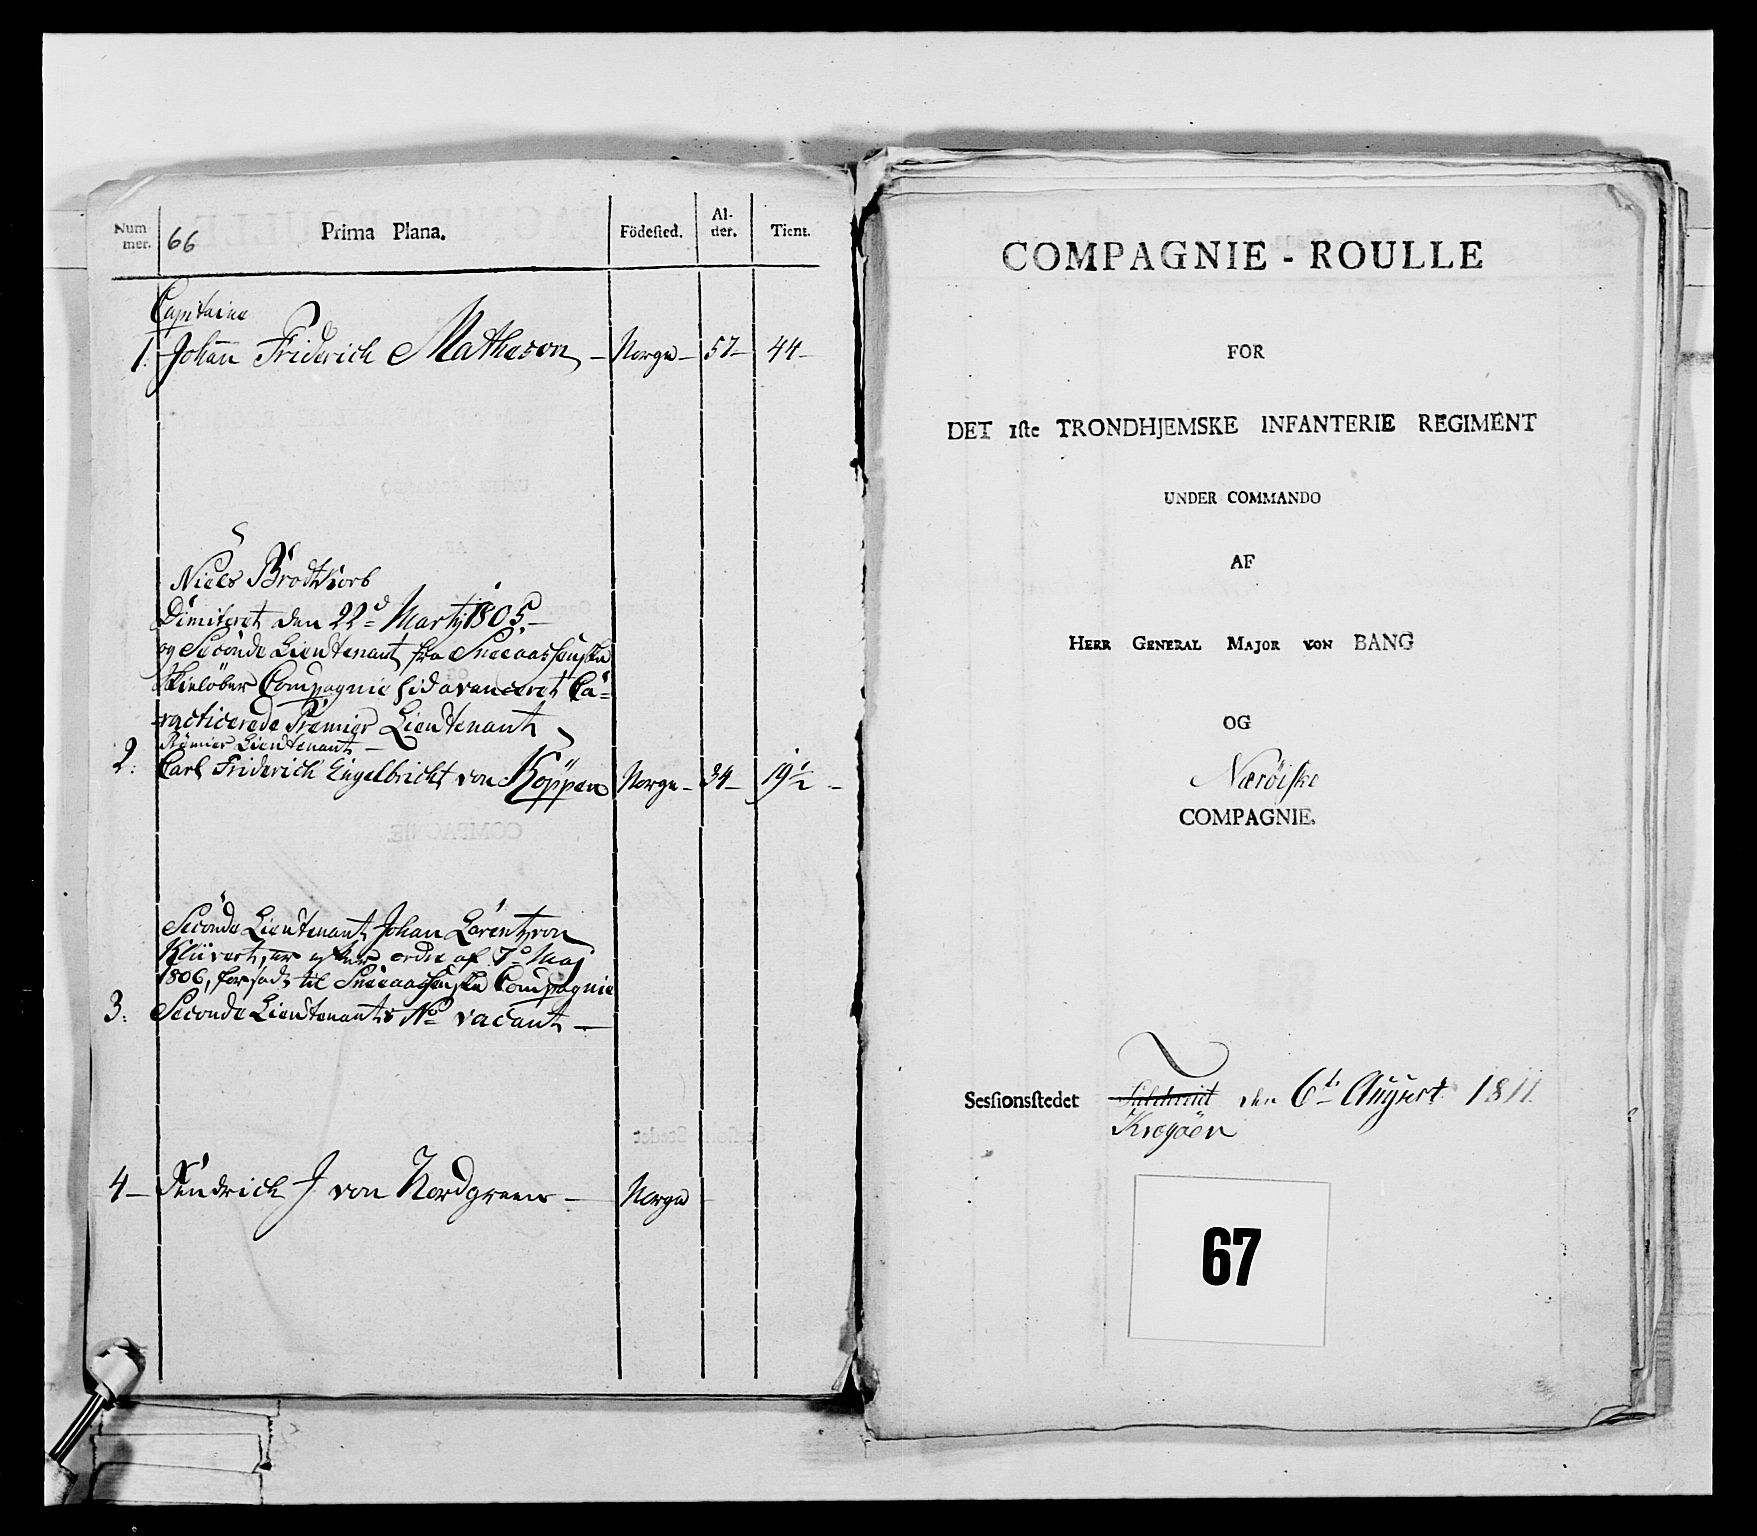 Num-
mer.
66
Prima Plana.
Födested.
Al-
der.
Tient.
Capitaine
1. Johan Friderich Matheson, – Norge – 57 – 44 –
Niels Brodtkorb
Dimiteret den 22d Martij 1805. –
og Seconde Lieutenant fra Sneeaasenske
Skielöber Compagnie hid avanceret Ca-
racticerede Premier Lieutenant
Premier Lieutenant –
2: Carl Friderich Engelbricht von Köppen Norge – 34 – 19½ –
Seconde Lieutenant Johan Lorentz von
Klüver, er efter ordre af 7d Maj
1806, forsadt til Sneeaasenske Compagnie
3: Seconde Lieutenants No vacant –
4 – Fendrich J von Nordgreen – Norge
COMPAGNIE - ROULLE
FOR
DET 1ste TRONDHJEMSKE INFANTERIE REGIMENT
UNDER COMMANDO
AF
HERR GENERAL MAJOR VON BANG
OG
Næröiske
COMPAGNIE.
Sessionsstedet den 6te August 1811.
Krogöen
67